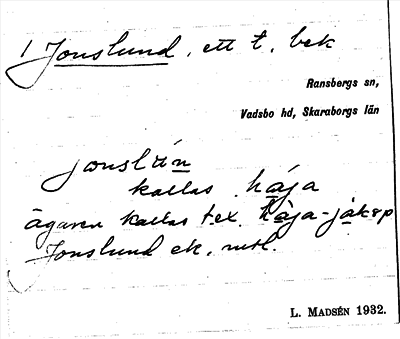 1 Jonslund, ett t. bek
Ransbergs sn,
Vadsbo hd, Skaraborgs län
kallas hája
ägaren kallas t.ex. hája-jákåp
Jonslund ek. mtl.
L. MADSÉN 1932.